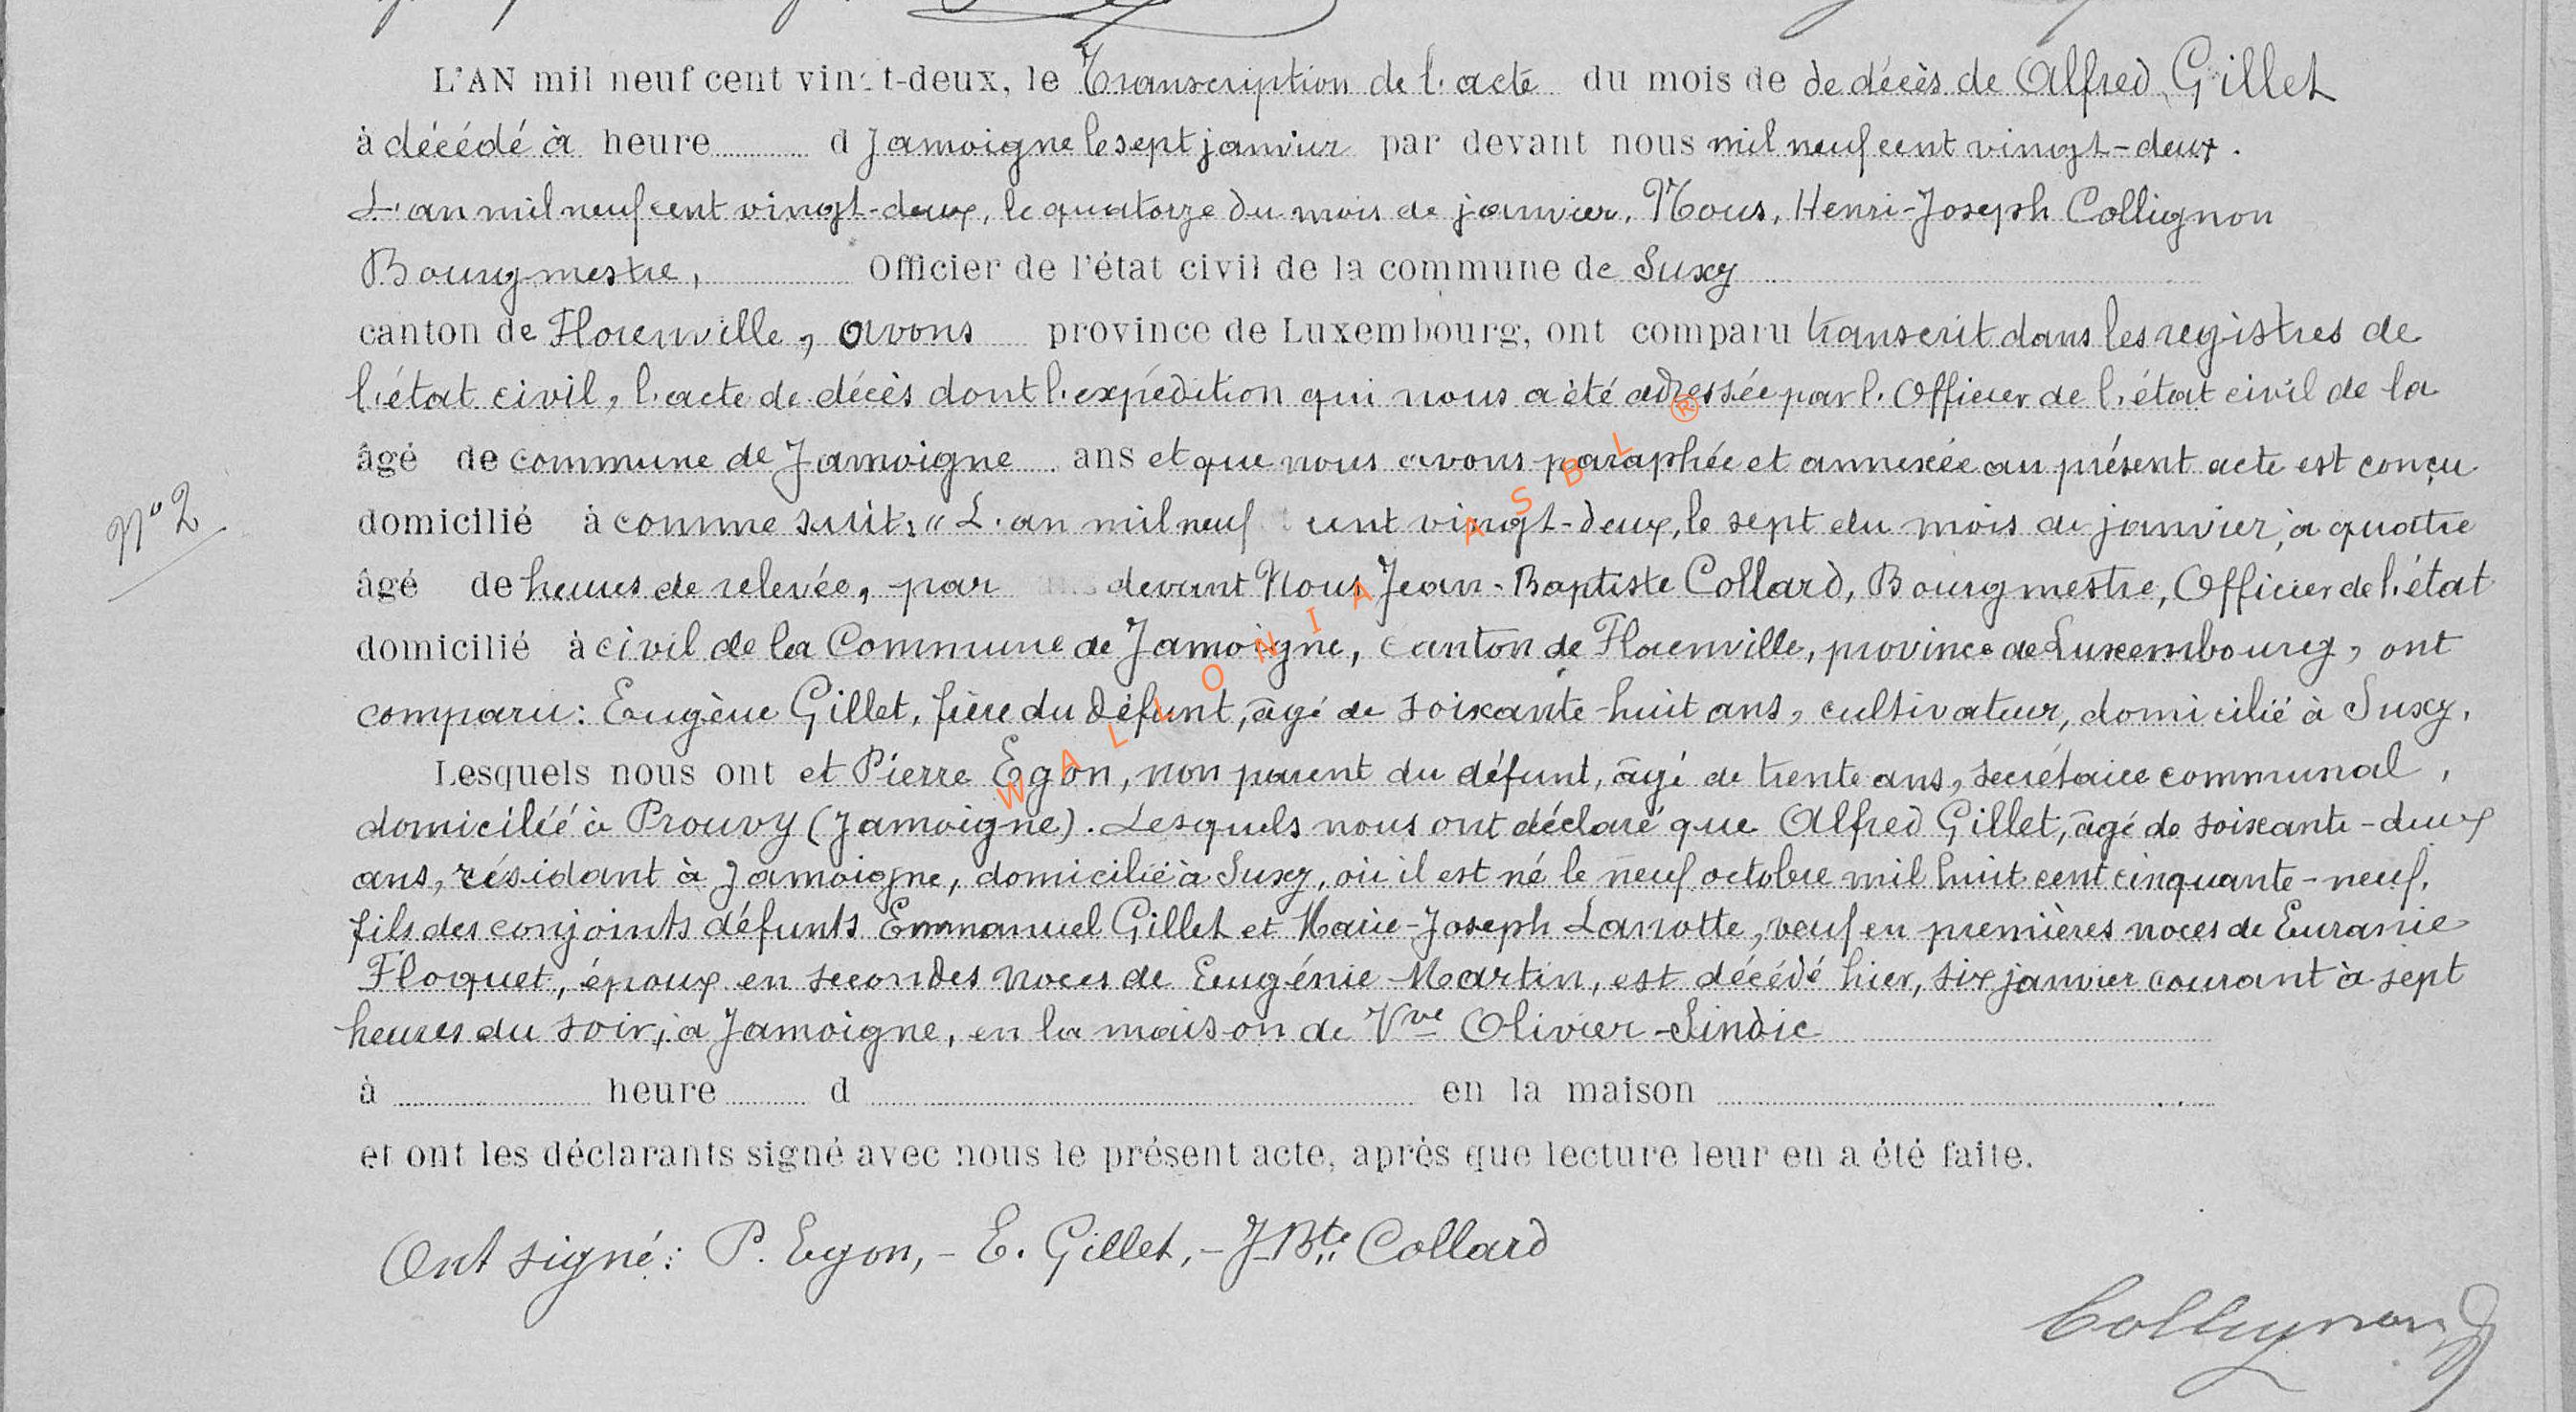 L'AN mil neuf cent vingt-deux, le Transcription de l'acte du mois de de décès de Alfred Gillet
à décédé à heure d Jamoigne le sept janvier par devant nous mil neuf cent vingt-deux.
L'an mil neuf cent vingt-deux, le quatorze du mois de janvier, Nous, Henri-Joseph Collignon
Bourgmestre, Officier de l'état civil de la commune de Suxy
canton de Florenville, avons province de Luxembourg, ont comparu transcrit dans les registres de
l'état civil, l'acte de décès dont l'expédition qui nous a été adressée par l'Officier de l'état civil de la
âgé de commune de Jamoigne ans et que nous avons paraphée et annexée au présent acte est conçu
N° 2
domicilié à comme suit: "L'an mil neuf cent vingt-deux, le sept du mois de janvier, à quatre
âgé de heures de relevée, par devant Nous Jean-Baptiste Collard, Bourgmestre, Officier de l'état
domicilié à civil de la Commune de Jamoigne, canton de Florenville, province de Luxembourg, ont
comparu: Eugène Gillet, frère du défunt, âgé de soixante-huit ans, cultivateur, domicilié à Suxy,
Lesquels nous ont et Pierre Egon, non parent du défunt, âgé de trente ans, secrétaire communal,
domicilié à Prouvy (Jamoigne). Lesquels nous ont déclaré que Alfred Gillet, âgé de soixante-deux
ans, résidant à Jamoigne, domicilié à Suxy, où il est né le neuf octobre mil huit cent cinquante-neuf,
fils des conjoints défunts Emmanuel Gillet et Marie-Joseph Lanotte, veuf en premières noces de Euranie
Floquet, époux en secondes noces de Eugénie Martin, est décédé hier, six janvier courant à sept
heures du soir, à Jamoigne, en la maison de Vve Olivier-Sindic
à heure d en la maison
et ont les déclarants signé avec nous le présent acte, après que lecture leur en a été faite.
Ont signé: P. Egon, - E. Gillet, - J. Bte Collard
Collignon
WALLONIA ASBL ®